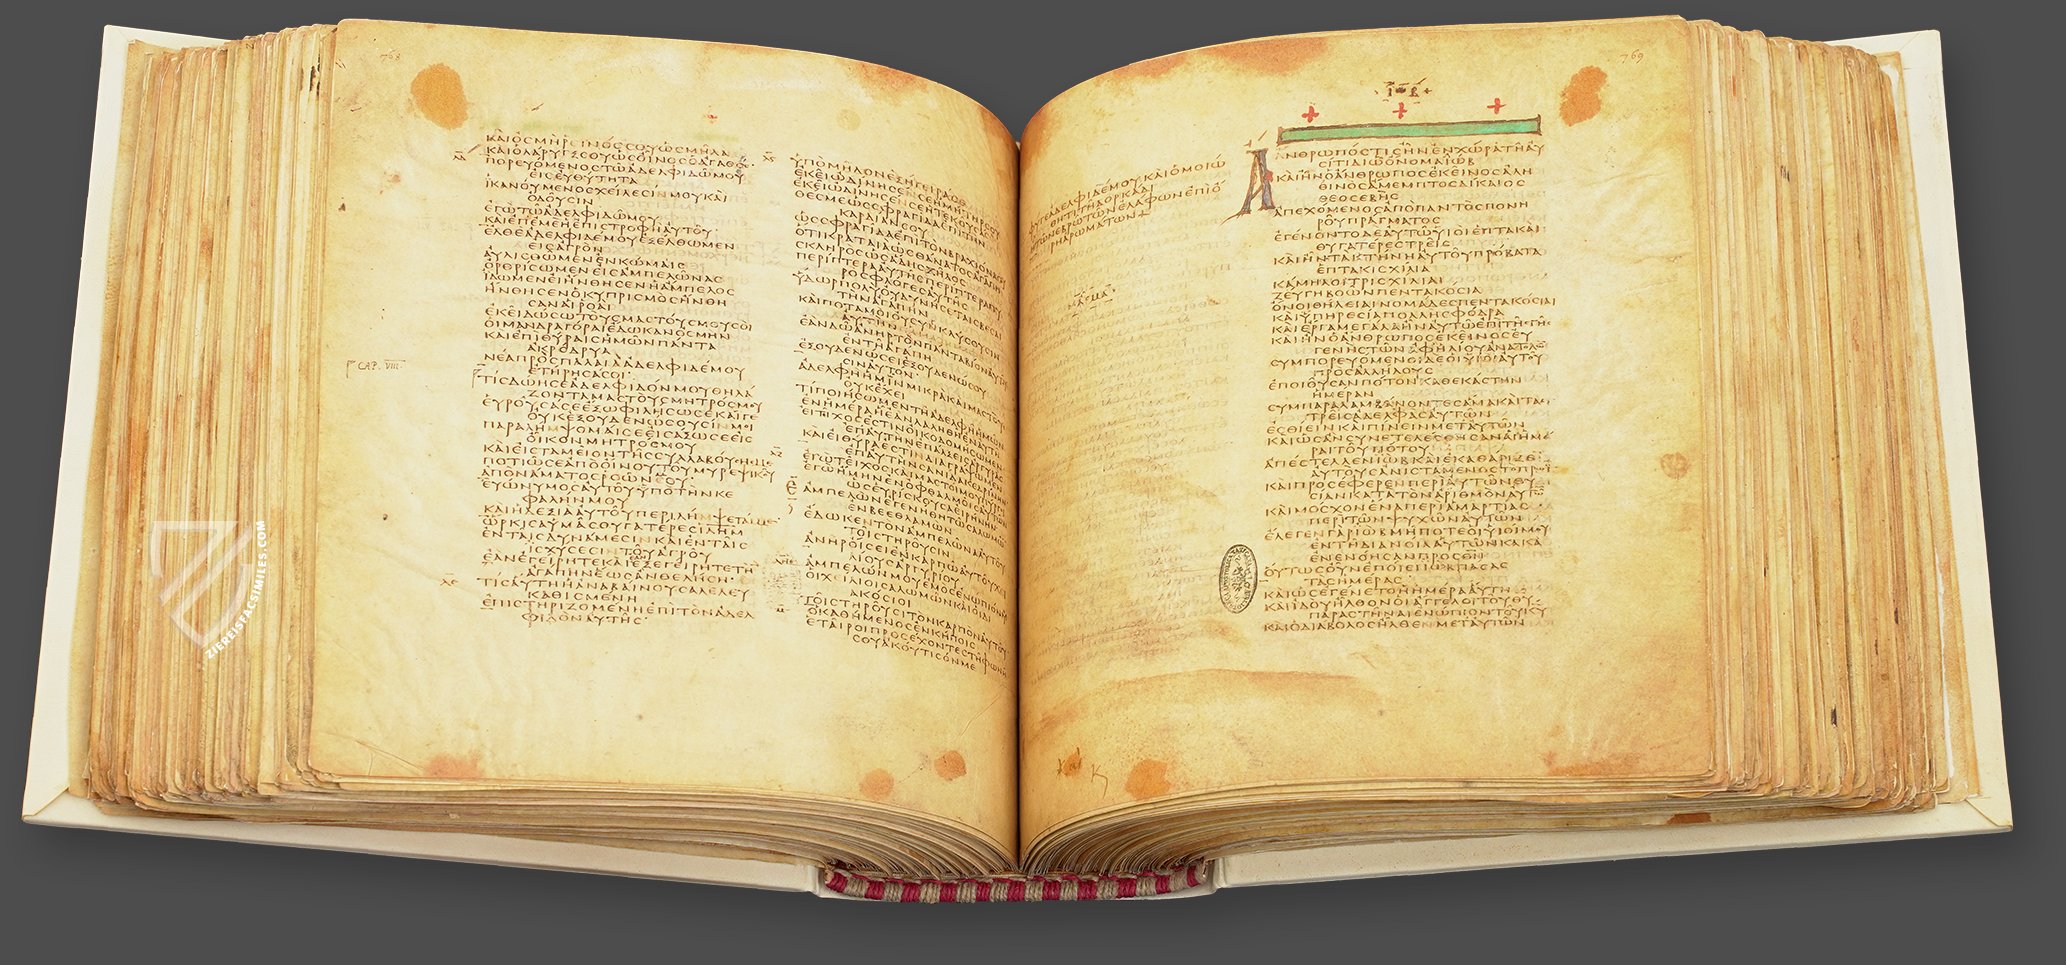 768
ΚΑΙΟΛΑΡΥΓΞΣΟΥΩΣΟΙΝΟΣΟΑΓΑΘΟΣ
ΠΟΡΕΥΟΜΕΝΟΣΤΩΑΔΕΛΦΙΔΩΜΟΥ
ΕΙΣΕΥΘΥΤΗΤΑ
ΙΚΑΝΟΥΜΕΝΟΣΧΕΙΛΕΣΙΝΜΟΥΚΑΙ
ΟΔΟΥΣΙΝ
ΕΓΩΤΩΑΔΕΛΦΙΔΩΜΟΥ
ΚΑΙΕΠΕΜΕΗΕΠΙΣΤΡΟΦΗΑΥΤΟΥ
ΕΛΘΕΑΔΕΛΦΙΔΕΜΟΥΕΞΕΛΘΩΜΕΝ
ΕΙΣΑΓΡΟΝ
ΑΥΛΙΣΘΩΜΕΝΕΝΚΩΜΑΙΣ
ΟΡΘΡΙΣΩΜΕΝΕΙΣΑΜΠΕΛΩΝΑΣ
ΙΔΩΜΕΝΕΙΗΝΘΗΣΕΝΗΑΜΠΕΛΟΣ
ΗΝΘΗΣΕΝΟΚΥΠΡΙΣΜΟΣΗΝΘΗ
ΣΑΝΑΙΡΟΑΙ
ΕΚΕΙΔΩΣΩΤΟΥΣΜΑΣΤΟΥΣΜΟΥΣΟΙ
ΟΙΜΑΝΔΡΑΓΟΡΑΙΕΔΩΚΑΝΟΣΜΗΝ
ΚΑΙΕΠΙΘΥΡΑΙΣΗΜΩΝΠΑΝΤΑ
ΑΚΡΟΔΡΥΑ
ΝΕΑΠΡΟΣΠΑΛΑΙΑΑΔΕΛΦΙΔΕΜΟΥ
ΕΤΗΡΗΣΑΣΟΙ
CAP. VIII
ΤΙΣΔΩΗΣΕΑΔΕΛΦΙΔΟΝΜΟΥΘΗΛΑ
ΖΟΝΤΑΜΑΣΤΟΥΣΜΗΤΡΟΣΜΟΥ
ΕΥΡΟΥΣΑΣΕΕΞΩΦΙΛΗΣΩΣΕΚΑΙΓΕ
ΟΥΚΕΞΟΥΔΕΝΩΣΟΥΣΙΝΜΟΙ
ΠΑΡΑΛΗΜΨΟΜΑΙΣΕΕΙΣΑΞΩΣΕΕΙΣ
ΟΙΚΟΝΜΗΤΡΟΣΜΟΥ
ΚΑΙΕΙΣΤΑΜΕΙΟΝΤΗΣΣΥΛΛΑΒΟΥΣΗΣΜΕ
ΠΟΤΙΩΣΕΑΠΟΟΙΝΟΥΤΟΥΜΥΡΕΨΙΚΟΥ
ΑΠΟΝΑΜΑΤΟΣΡΟΩΝΜΟΥ
ΕΥΩΝΥΜΟΣΑΥΤΟΥΥΠΟΤΗΝΚΕ
ΦΑΛΗΝΜΟΥ
ΚΑΙΗΔΕΞΙΑΑΥΤΟΥΠΕΡΙΛΗΜΨΕΤΑΙΜΕ
ΩΡΚΙΣΑΥΜΑΣΘΥΓΑΤΕΡΕΣΙΛΗΜ
ΕΝΤΑΙΣΔΥΝΑΜΕΣΙΝΚΑΙΕΝΤΑΙΣ
ΙΣΧΥΣΕΣΙΝΤΟΥΑΓΡΟΥ
ΕΑΝΕΓΕΙΡΗΤΕΚΑΙΕΞΕΓΕΙΡΗΤΕΤΗ
ΑΓΑΠΗΝΕΩΣΑΝΘΕΛΗΣΗ
ΤΙΣΑΥΤΗΗΑΝΑΒΑΙΝΟΥΣΑΛΕΛΕΥ
ΚΑΘΙΣΜΕΝΗ
ΕΠΙΣΤΗΡΙΖΟΜΕΝΗΕΠΙΤΟΝΑΔΕΛ
ΦΙΔΟΝΑΥΤΗΣ
ΥΠΟΜΗΛΟΝΕΞΗΓΕΙΡΑΣΕ
ΕΚΕΙΩΔΙΝΗΣΕΝΣΕΗΜΗΤΗΡΣΟΥ
ΕΚΕΙΩΔΙΝΗΣΕΝΣΕΗΤΕΚΟΥΣΑΣΕ
ΘΕΣΜΕΩΣΣΦΡΑΓΙΔΑΕΠΙΤΗΝ
ΚΑΡΔΙΑΝΣΟΥ
ΩΣΣΦΡΑΓΙΔΑΕΠΙΤΟΝΒΡΑΧΙΟΝΑΣΟΥ
ΟΤΙΚΡΑΤΑΙΑΩΣΘΑΝΑΤΟΣΑΓΑΠΗ
ΣΚΛΗΡΟΣΩΣΑΔΗΣΖΗΛΟΣ
ΠΕΡΙΠΤΕΡΑΑΥΤΗΣΠΕΡΙΠΤΕΡΑΠΥ
ΡΟΣΦΛΟΓΕΣΑΥΤΗΣ
ΥΔΩΡΠΟΛΥΟΥΔΥΝΗΣΕΤΑΙΣΒΕΣΑΙ
ΤΗΝΑΓΑΠΗΝ
ΚΑΙΠΟΤΑΜΟΙΟΥΣΥΓΚΛΥΣΟΥΣΙΝ
ΑΥΤΗΝ
ΕΑΝΔΩΑΝΗΡΤΟΝΠΑΝΤΑΒΙΟΝΑΥΤΟΥ
ΕΝΤΗΑΓΑΠΗ
ΕΞΟΥΔΕΝΩΣΕΙΕΞΟΥΔΕΝΩΣΟΥ
ΣΙΝΑΥΤΟΝ
ΑΔΕΛΦΗΗΜΙΝΜΙΚΡΑΚΑΙΜΑΣΤΟΥΣ
ΟΥΚΕΧΕΙ
ΤΙΠΟΙΗΣΩΜΕΝΤΗΑΔΕΛΦΗΗΜΩΝ
ΕΝΗΜΕΡΑΗΕΑΝΛΑΛΗΘΗΕΝΑΥΤΗ
ΕΙΤΕΙΧΟΣΕΣΤΙΝΟΙΚΟΔΟΜΗΣΩΜΕΝ
ΕΠΑΥΤΗΝΕΠΑΛΞΕΙΣΑΡΓΥΡΑΣ
ΚΑΙΕΙΘΥΡΑΕΣΤΙΝΔΙΑΓΡΑΨΩΜΕΝ
ΕΠΑΥΤΗΝΣΑΝΙΔΑΚΕΔΡΙΝΗΝ
ΕΓΩΤΕΙΧΟΣΚΑΙΜΑΣΤΟΙΜΟΥΩΣΠΥΡΓΟΙ
ΕΓΩΗΜΗΝΕΝΟΦΘΑΛΜΟΙΣΑΥΤΟΥ
ΩΣΕΥΡΙΣΚΟΥΣΑΕΙΡΗΝΗΝ
ΑΜΠΕΛΩΝΕΓΕΝΗΘΗΤΩΣΑΛΩΜΩΝ
ΕΝΒΕΕΘΛΑΜΩΝ
ΕΔΩΚΕΝΤΟΝΑΜΠΕΛΩΝΑΑΥΤΟΥ
ΤΟΙΣΤΗΡΟΥΣΙΝ
ΑΝΗΡΟΙΣΕΙΕΝΚΑΡΠΩΑΥΤΟΥΧΙ
ΛΙΟΥΣΑΡΓΥΡΙΟΥ
ΑΜΠΕΛΩΝΜΟΥΕΜΟΣΕΝΩΠΙΟΝΜΟΥ
ΟΙΧΕΙΛΙΟΙΣΑΛΩΜΩΝΚΑΙΟΙΔΙ
ΑΚΟΣΙΟΙ
ΤΟΙΣΤΗΡΟΥΣΙΤΟΝΚΑΡΠΟΝΑΥΤΟΥ
ΟΚΑΘΗΜΕΝΟΣΕΝΚΗΠΟΙΣ
ΕΤΑΙΡΟΙΠΡΟΣΕΧΟΝΤΕΣΤΗΦΩΝΗ
ΣΟΥΑΚΟΥΤΙΣΟΝΜΕ
769
ΦΥΓΕΑΔΕΛΦΙΔΕΜΟΥΚΑΙΟΜΟΙΩ
ΘΗΤΙΤΗΔΟΡΚΑΔΙ
ΗΤΩΝΕΒΡΩΤΩΝΕΛΑΦΩΝΕΠΙΟ
ΡΗΑΡΩΜΑΤΩΝ
ΑΣΜΑ
ΙΩΒ
ΑΝΘΡΩΠΟΣΤΙΣΗΝΕΝΧΩΡΑΤΗΑΥ
ΣΙΤΙΔΙΩΟΝΟΜΑΙΩΒ
ΚΑΙΗΝΟΑΝΘΡΩΠΟΣΕΚΕΙΝΟΣΑΛΗ
ΘΙΝΟΣΑΜΕΜΠΤΟΣΔΙΚΑΙΟΣ
ΘΕΟΣΕΒΗΣ
ΑΠΕΧΟΜΕΝΟΣΑΠΟΠΑΝΤΟΣΠΟΝΗ
ΡΟΥΠΡΑΓΜΑΤΟΣ
ΕΓΕΝΟΝΤΟΔΕΑΥΤΩΥΙΟΙΕΠΤΑΚΑΙ
ΘΥΓΑΤΕΡΕΣΤΡΕΙΣ
ΚΑΙΗΝΤΑΚΤΗΝΗΑΥΤΟΥΠΡΟΒΑΤΑ
ΕΠΤΑΚΙΣΧΙΛΙΑ
ΚΑΜΗΛΟΙΤΡΙΣΧΙΛΙΑΙ
ΖΕΥΓΗΒΟΩΝΠΕΝΤΑΚΟΣΙΑ
ΟΝΟΙΘΗΛΕΙΑΙΝΟΜΑΔΕΣΠΕΝΤΑΚΟΣΙΑΙ
ΚΑΙΥΠΗΡΕΣΙΑΠΟΛΛΗΣΦΟΔΡΑ
ΚΑΙΕΡΓΑΜΕΓΑΛΑΗΝΑΥΤΩΕΠΙΤΗΣΓΗΣ
ΚΑΙΗΝΟΑΝΘΡΩΠΟΣΕΚΕΙΝΟΣΕΥ
ΓΕΝΗΣΤΩΝΑΦΗΛΙΟΥΑΝΑΤΟΛΩΝ
ΣΥΜΠΟΡΕΥΟΜΕΝΟΙΔΕΟΙΥΙΟΙΑΥΤΟΥ
ΠΡΟΣΑΛΛΗΛΟΥΣ
ΕΠΟΙΟΥΣΑΝΠΟΤΟΝΚΑΘΕΚΑΣΤΗΝ
ΗΜΕΡΑΝ
ΣΥΜΠΑΡΑΛΑΜΒΑΝΟΝΤΕΣΑΜΑΚΑΙΤΑΣ
ΤΡΕΙΣΑΔΕΛΦΑΣΑΥΤΩΝ
ΕΣΘΙΕΙΝΚΑΙΠΙΝΕΙΝΜΕΤΑΥΤΩΝ
ΚΑΙΩΣΑΝΣΥΝΕΤΕΛΕΣΘΗΣΑΝΑΙΗΜΕ
ΡΑΙΤΟΥΠΟΤΟΥ
ΑΠΕΣΤΕΛΛΕΝΙΩΒΚΑΙΕΚΑΘΑΡΙΖΕ
ΑΥΤΟΥΣΑΝΙΣΤΑΜΕΝΟΣΤΟΠΡΩΙ
ΚΑΙΠΡΟΣΕΦΕΡΕΝΠΕΡΙΑΥΤΩΝΘΥ
ΣΙΑΝΚΑΤΑΤΟΝΑΡΙΘΜΟΝΑΥΤΩΝ
ΚΑΙΜΟΣΧΟΝΕΝΑΠΕΡΙΑΜΑΡΤΙΑΣ
ΠΕΡΙΤΩΝΨΥΧΩΝΑΥΤΩΝ
ΕΛΕΓΕΝΓΑΡΙΩΒΜΗΠΟΤΕΟΙΥΙΟΙΜΟΥ
ΕΝΤΗΔΙΑΝΟΙΑΑΥΤΩΝΚΑΚΑ
ΕΝΕΝΟΗΣΑΝΠΡΟΣΘΝ
ΟΥΤΩΣΟΥΝΕΠΟΙΕΙΙΩΒΠΑΣΑΣ
ΤΑΣΗΜΕΡΑΣ
ΚΑΙΩΣΕΓΕΝΕΤΟΗΗΜΕΡΑΑΥΤΗ
ΚΑΙΙΔΟΥΗΛΘΟΝΟΙΑΓΓΕΛΟΙΤΟΥΘΥ
ΠΑΡΑΣΤΗΝΑΙΕΝΩΠΙΟΝΤΟΥΚΥ
ΚΑΙΟΔΙΑΒΟΛΟΣΗΛΘΕΝΜΕΤΑΥΤΩΝ
ZIEREISFACSIMILES.COM